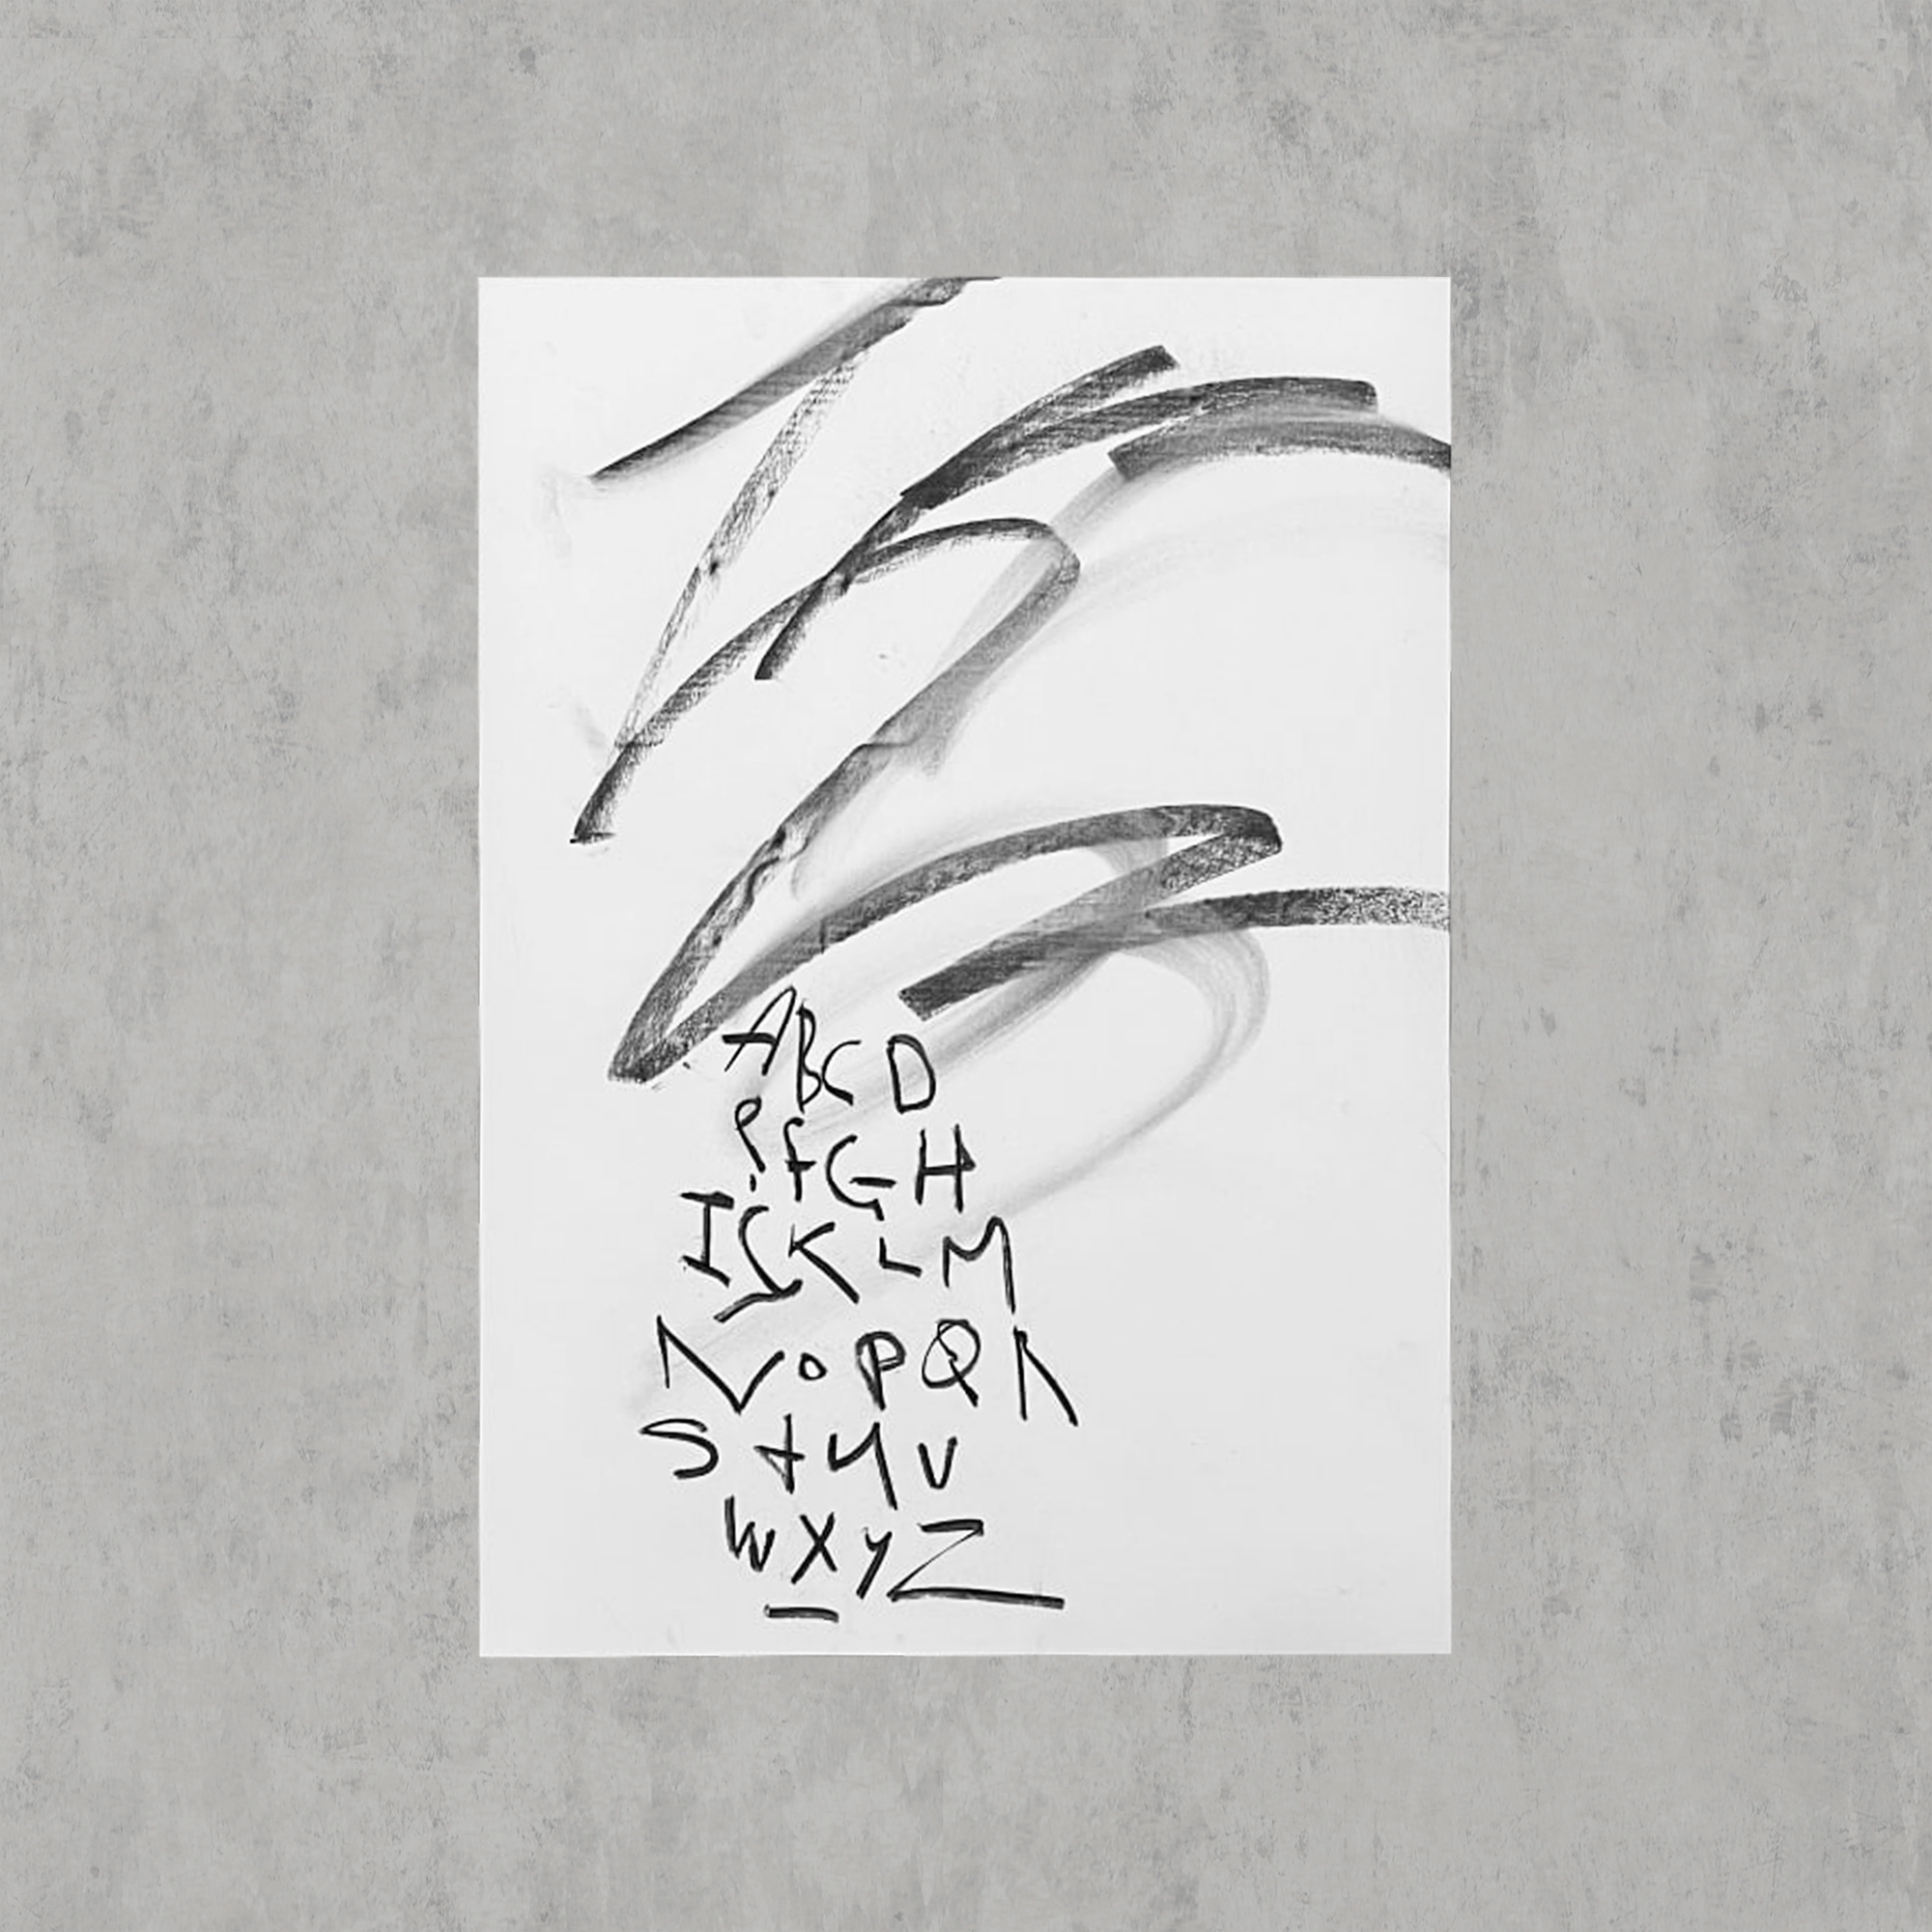 ABCD
efGH
IJKLM
NoPQR
StuV
WXyZ